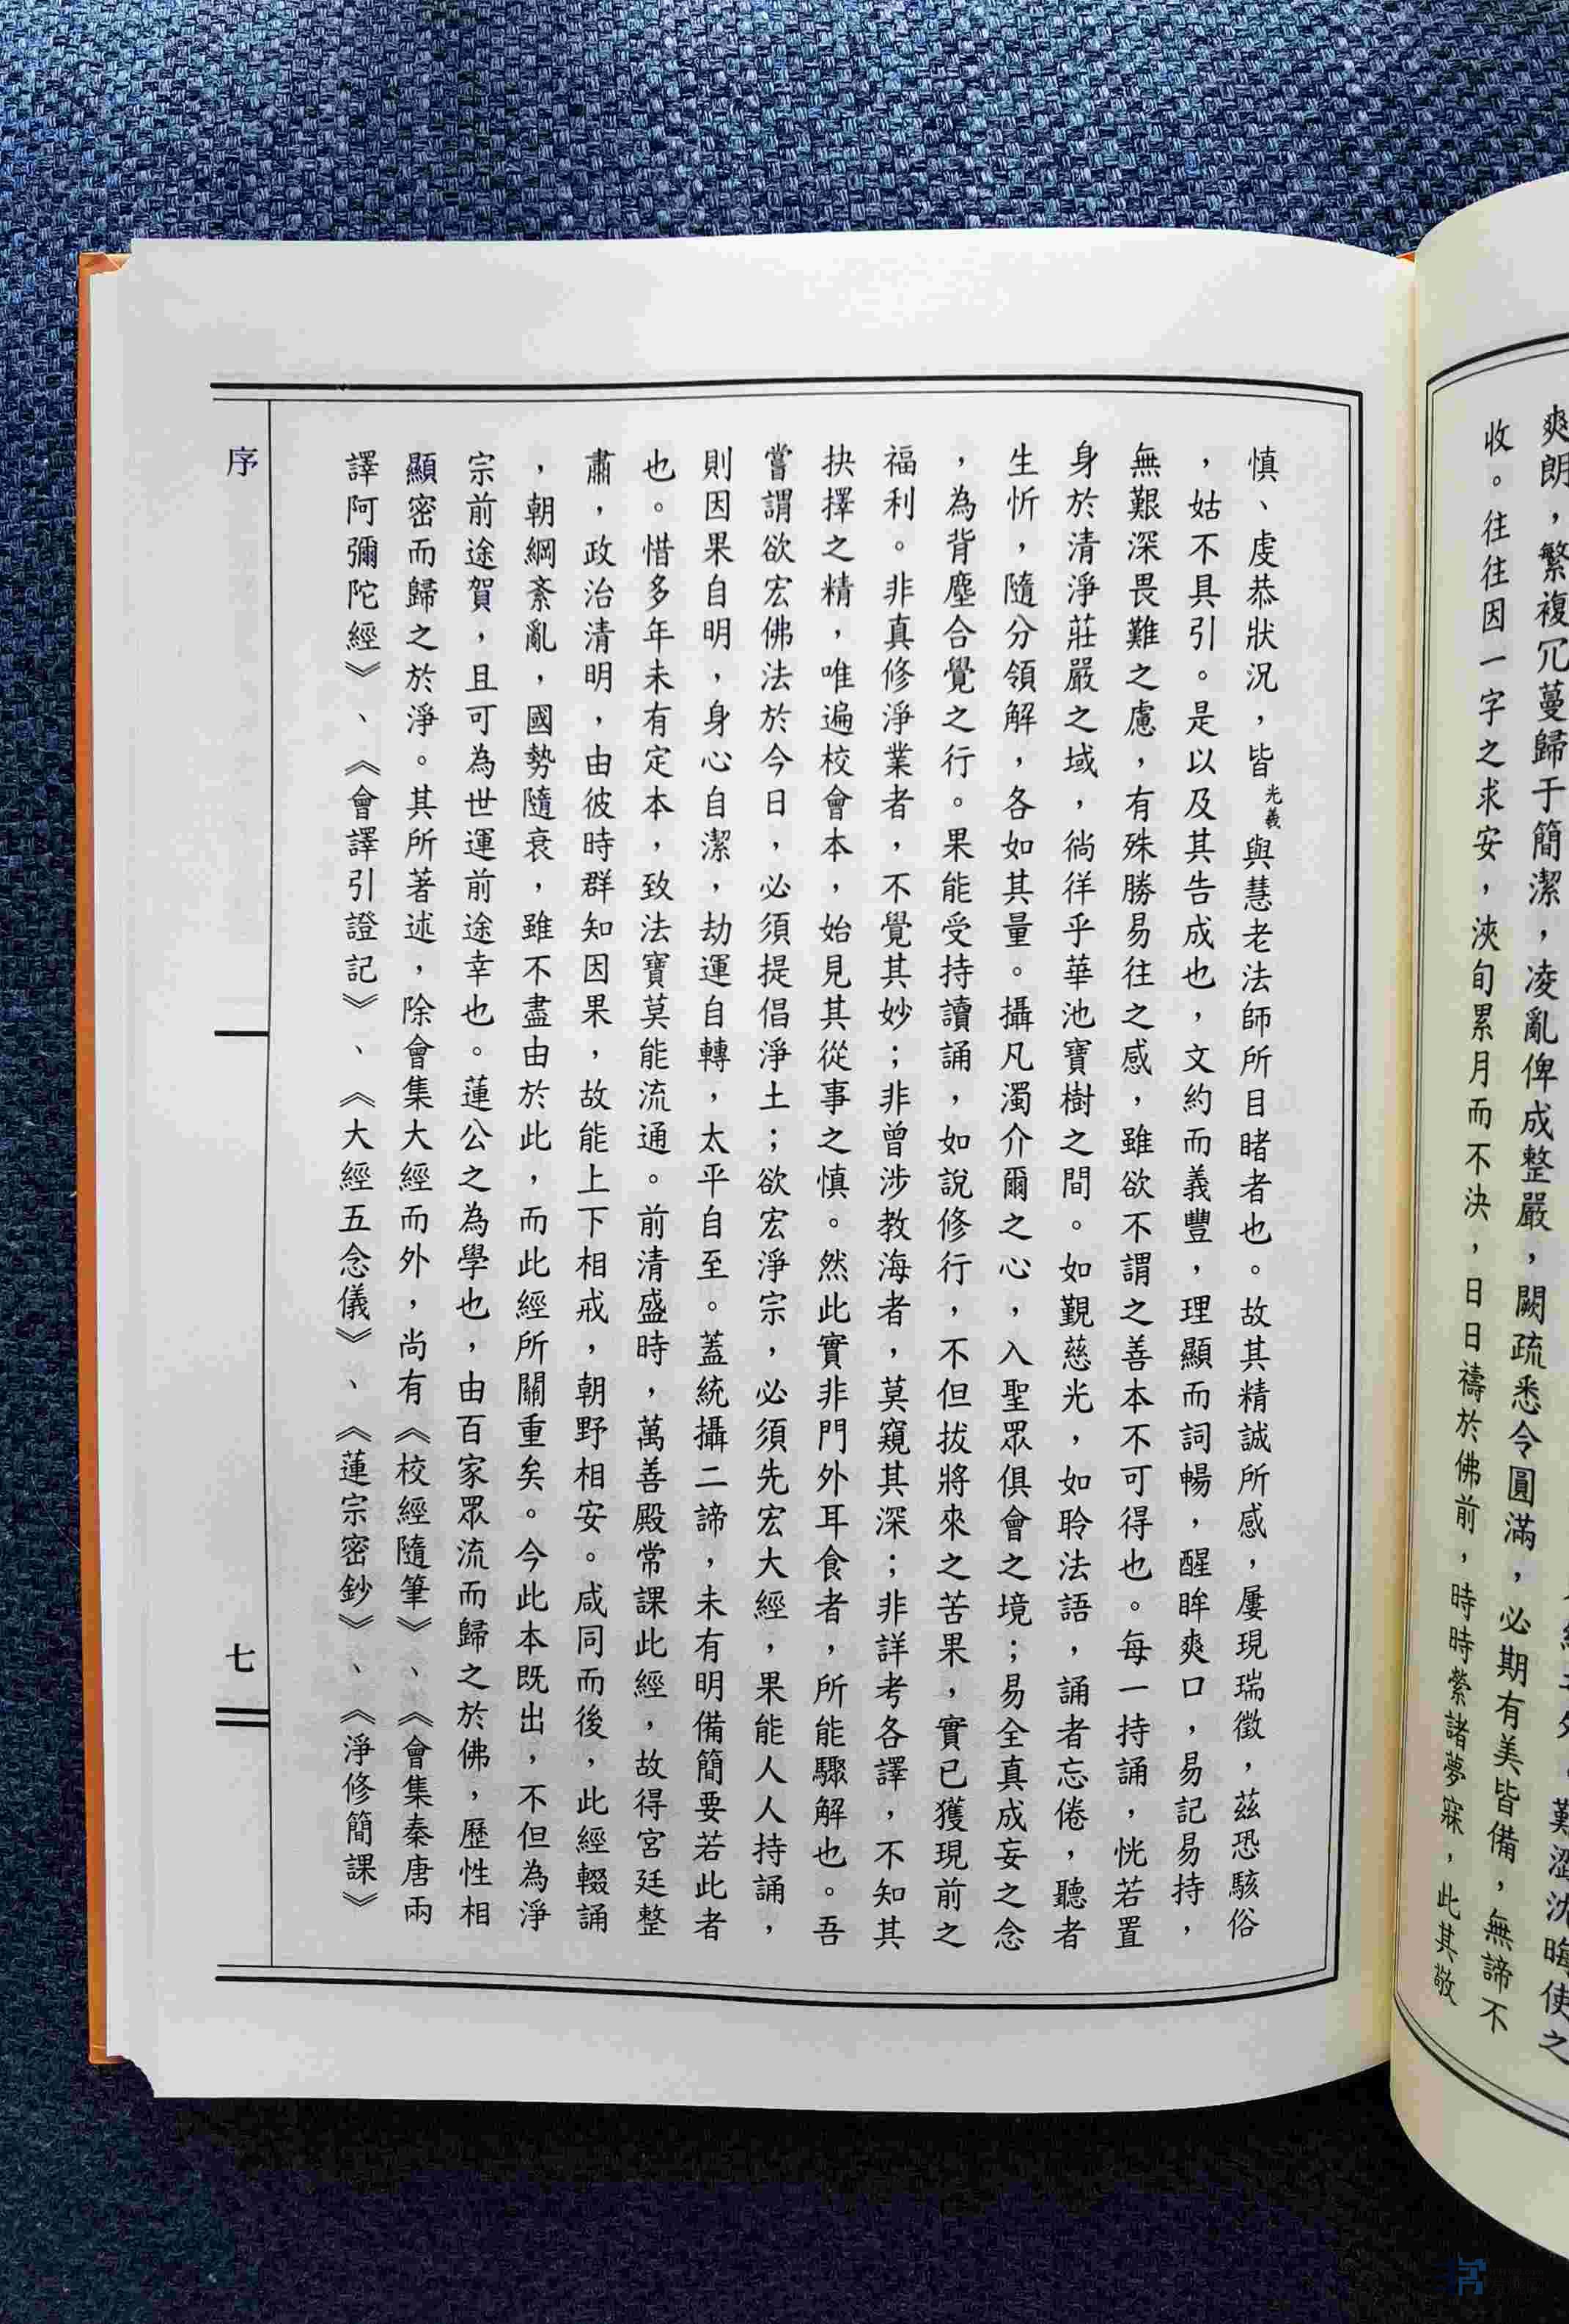 收。往往因一字之求安，浹旬累月而不決，日日禱於佛前，時時縈諸夢寐，此其敬
慎、虔恭狀況，皆光義與慧老法師所目睹者也。故其精誠所感，屢現瑞徵，茲恐駭俗
，姑不具引。是以及其告成也，文約而義豐，理顯而詞暢，醒眸爽口，易記易持，
無艱深畏難之慮，有殊勝易往之感，雖欲不謂之善本不可得也。每一持誦，恍若置
身於清淨莊嚴之域，徜徉乎華池寶樹之間。如覲慈光，如聆法語，誦者忘倦，聽者
生忻，隨分領解，各如其量。攝凡濁介爾之心，入聖眾俱會之境；易全真成妄之念
，為背塵合覺之行。果能受持讀誦，如說修行，不但拔將來之苦果，實已獲現前之
福利。非真修淨業者，不覺其妙；非曾涉教海者，莫窺其深；非詳考各譯，不知其
抉擇之精，唯遍校會本，始見其從事之慎。然此實非門外耳食者，所能驟解也。吾
嘗謂欲宏佛法於今日，必須提倡淨土；欲宏淨宗，必須先宏大經，果能人人持誦，
則因果自明，身心自潔，劫運自轉，太平自至。蓋統攝二諦，未有明備簡要若此者
也。惜多年未有定本，致法寶莫能流通。前清盛時，萬善殿常課此經，故得宮廷整
肅，政治清明，由彼時群知因果，故能上下相戒，朝野相安。咸同而後，此經輟誦
，朝綱紊亂，國勢隨衰，雖不盡由於此，而此經所關重矣。今此本既出，不但為淨
宗前途賀，且可為世運前途幸也。蓮公之為學也，由百家眾流而歸之於佛，歷性相
顯密而歸之於淨。其所著述，除會集大經而外，尚有《校經隨筆》、《會集秦唐兩
譯阿彌陀經》、《會譯引證記》、《大經五念儀》、《蓮宗密鈔》、《淨修簡課》
序
七